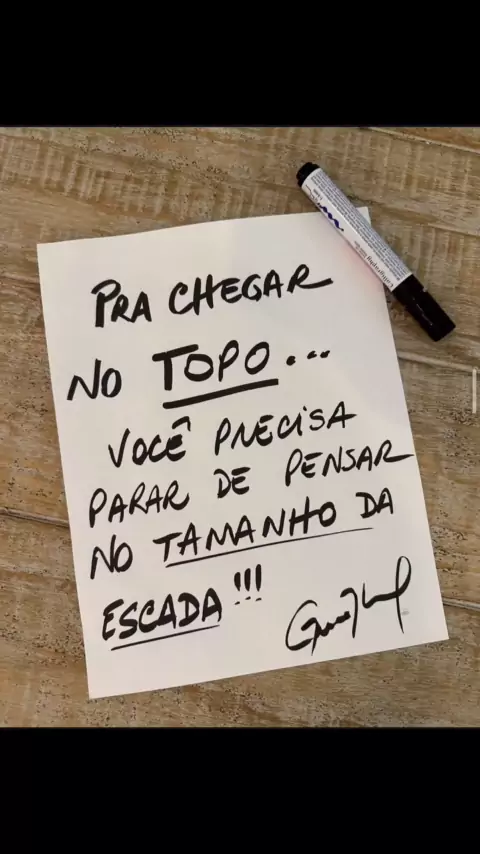 PRA CHEGAR
NO TOPO...
VOCÊ PRECISA
PARAR DE PENSAR
NO TAMANHO DA
ESCADA!!!